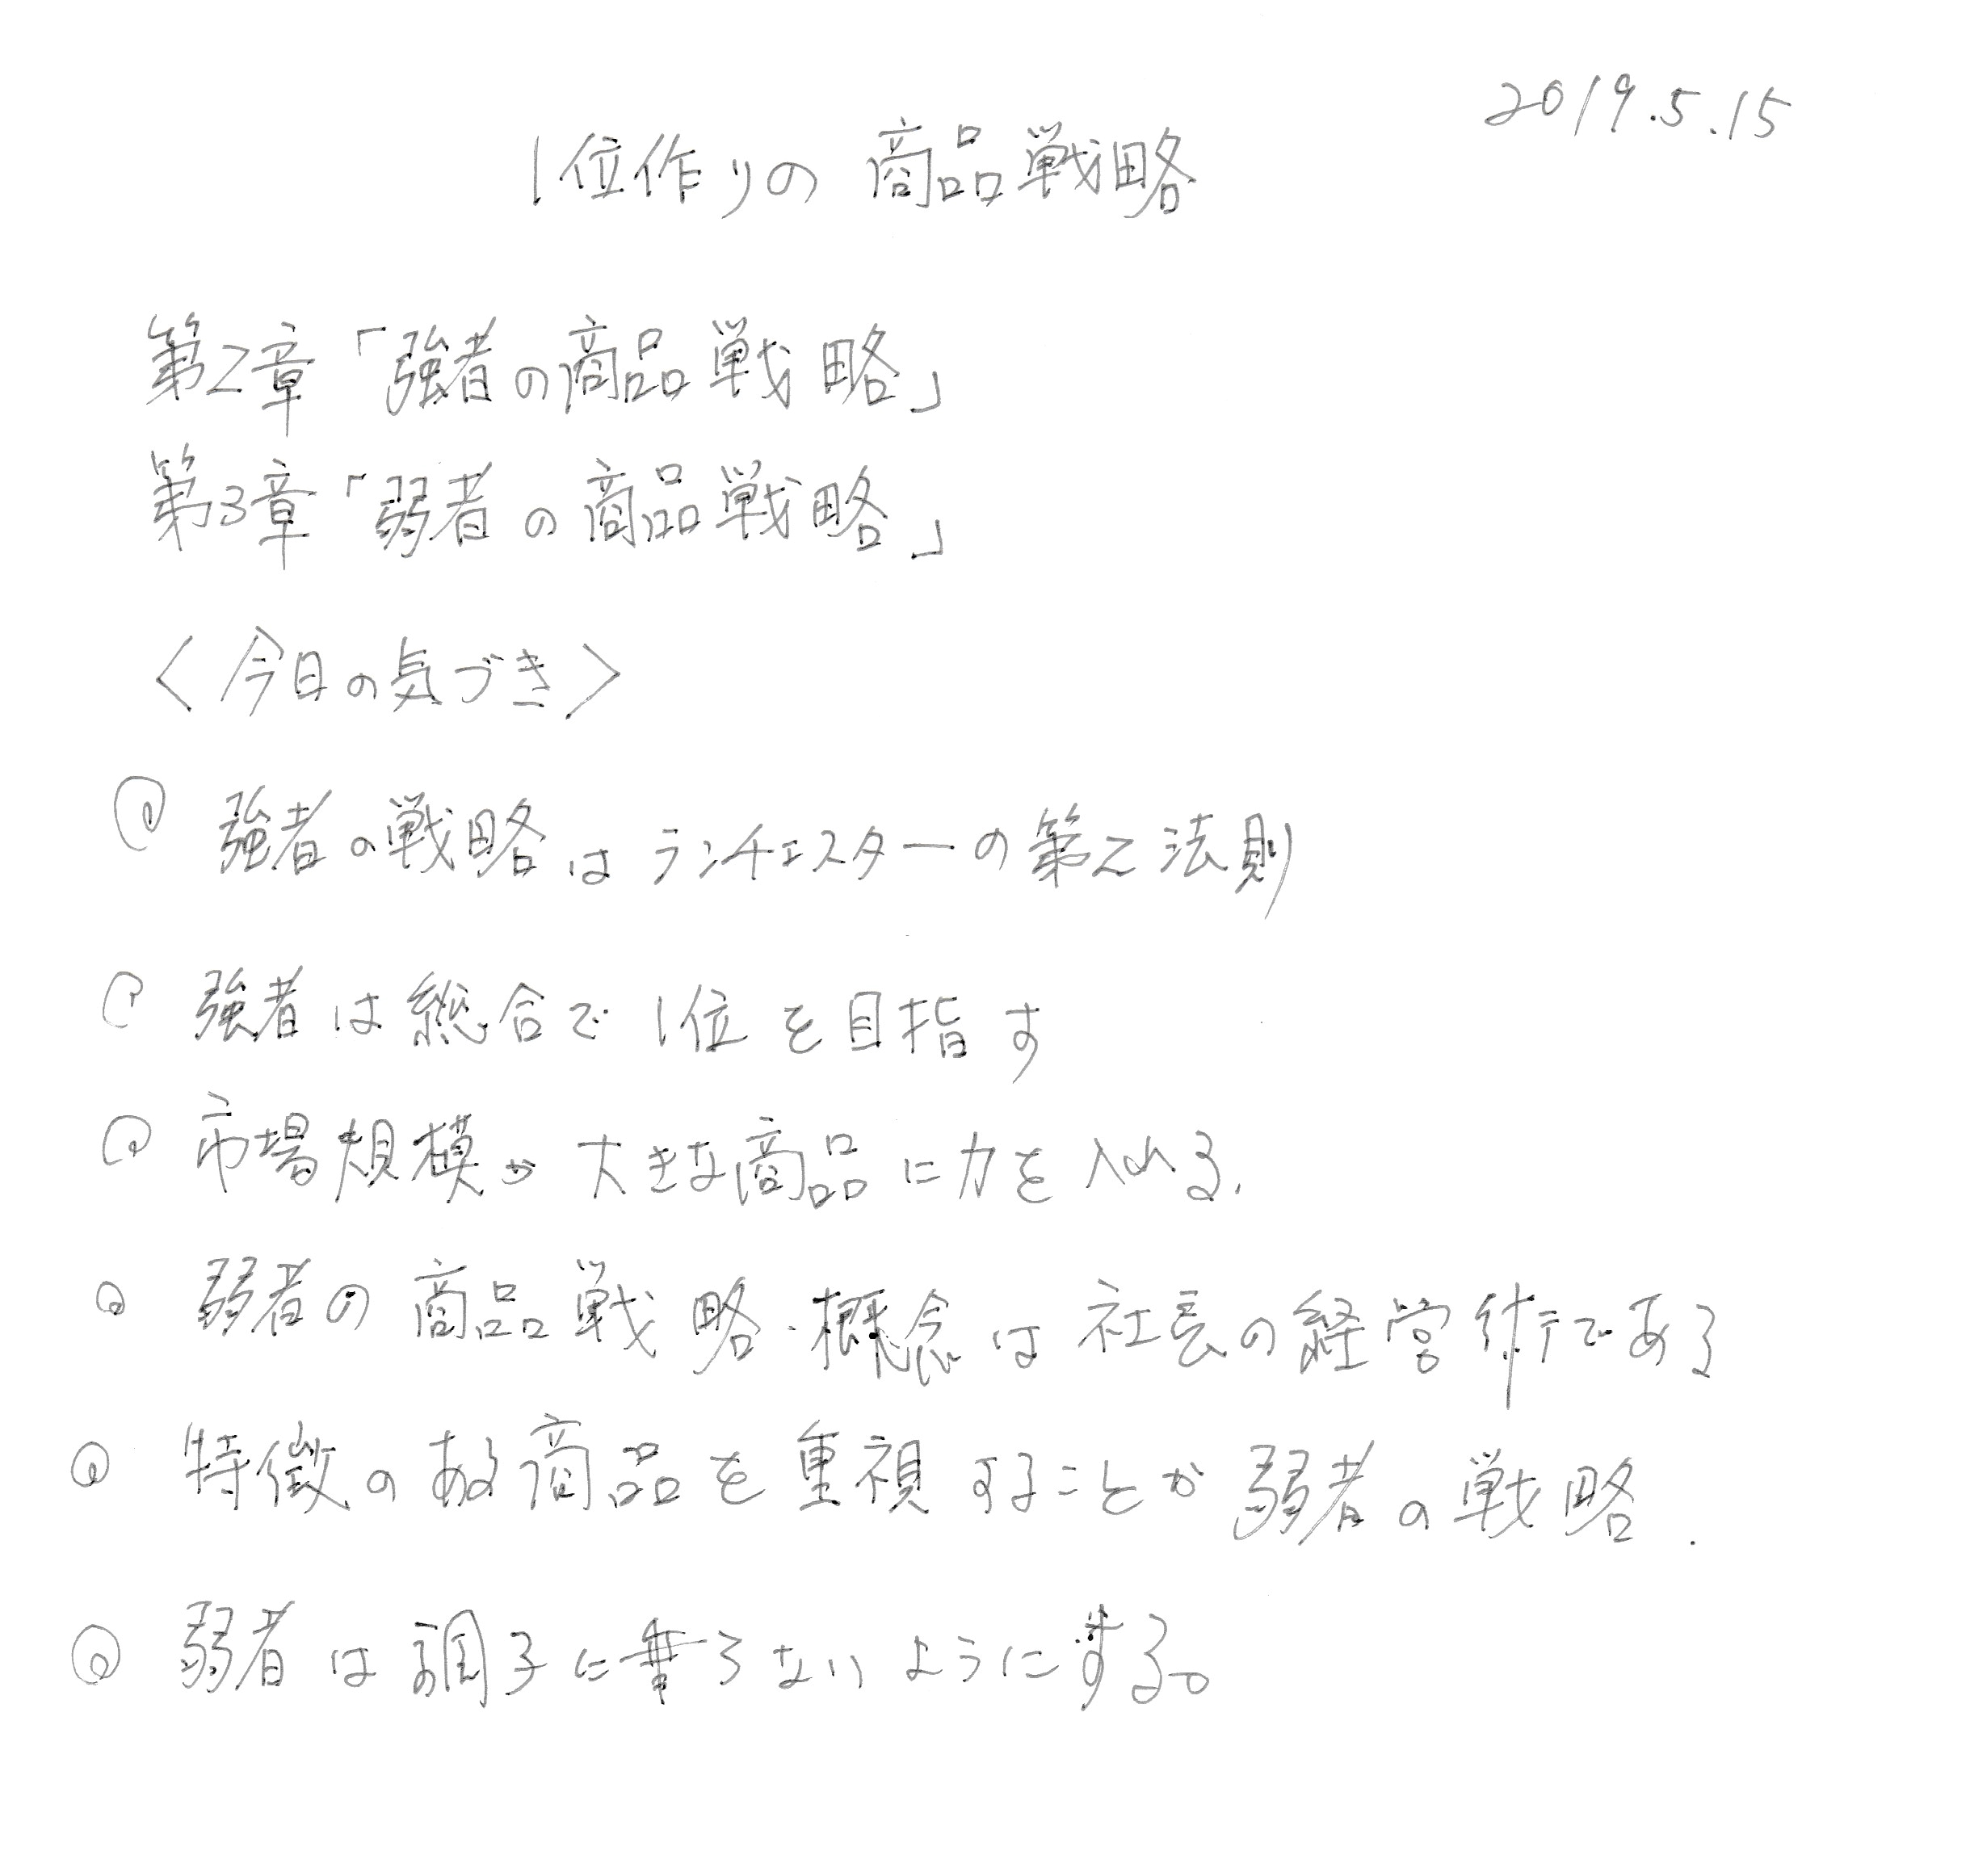 2019.5.15
1位作りの 商品戦略
第2章「強者の商品戦略」
第3章「弱者の商品戦略」
<今日の気づき>
◎ 強者の戦略は ランチェスターの第2法則
◎ 強者は総合で1位を目指す
◎ 市場規模が大きな商品に力を入れる.
◎ 弱者の商品戦略・概念は社長の経営術である
◎ 特徴のある商品を重視することが弱者の戦略.
◎ 弱者は調子に乗らないようにする。